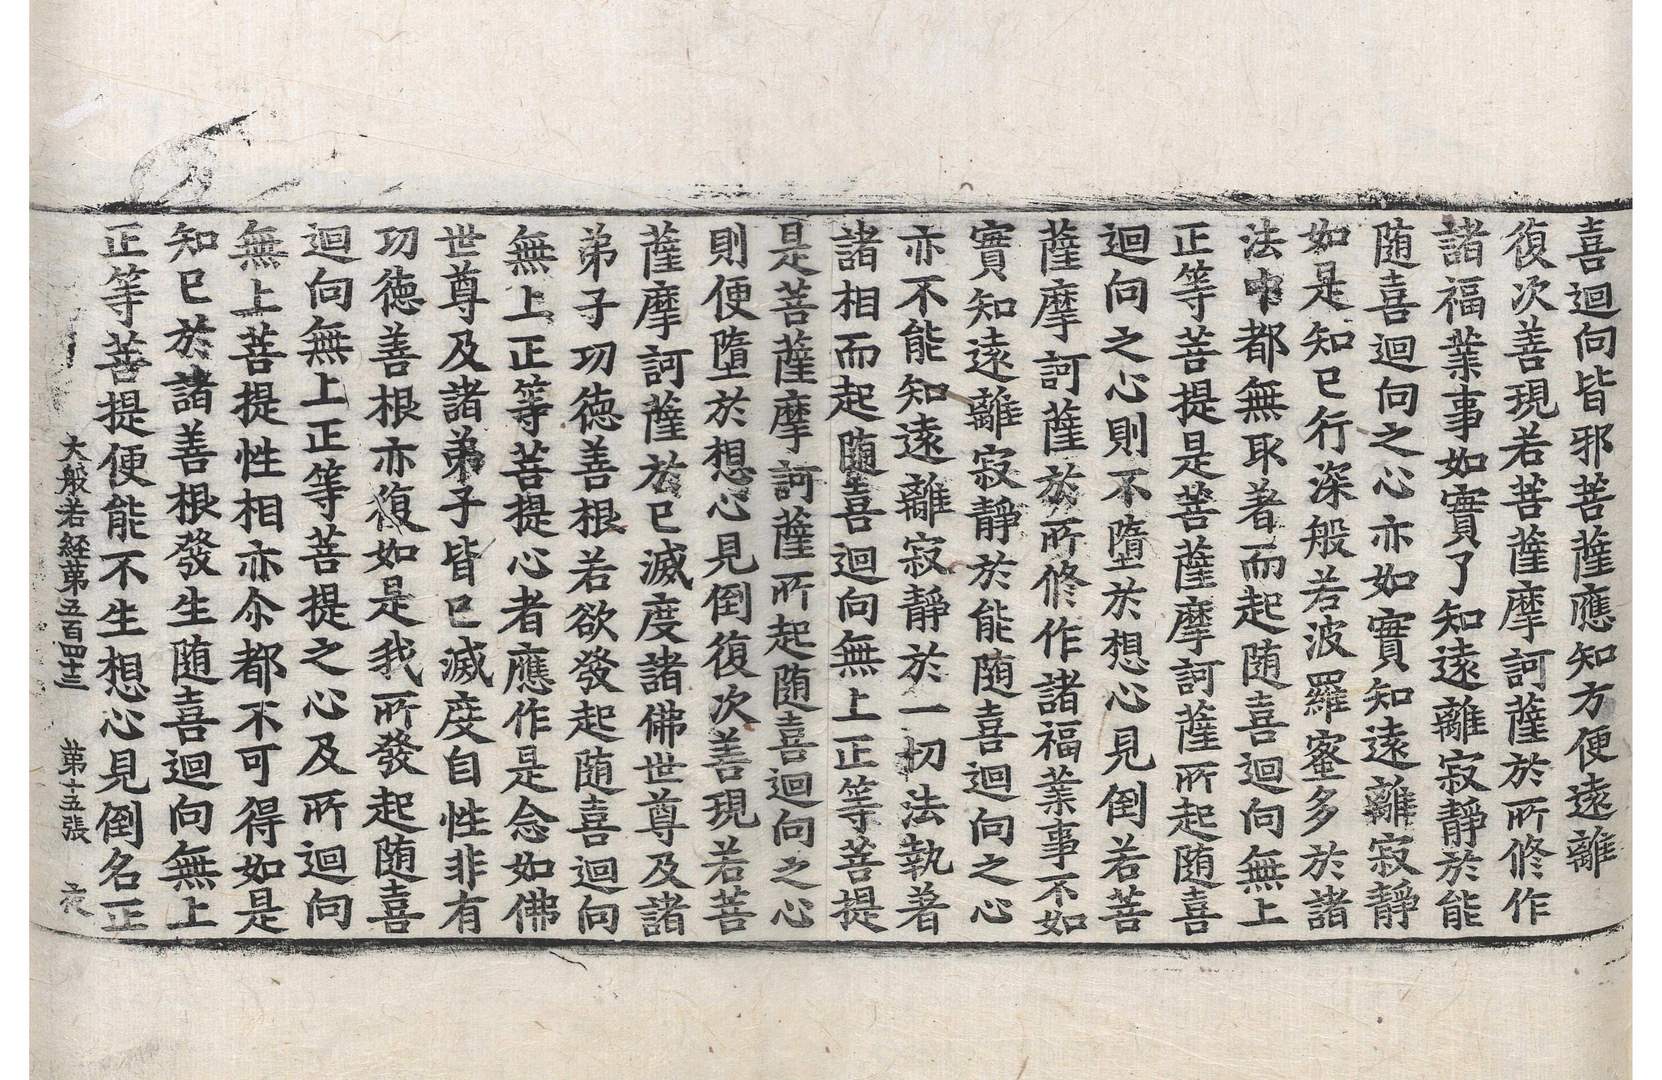 喜迴向皆邪菩薩應知方便遠離
復次善現若菩薩摩訶薩於所修作
諸福業事如實了知遠離寂靜於能
随喜迴向之心亦如實知遠離寂靜
如是知已行深般若波羅蜜多於諸
法中都無取著而起随喜迴向無上
正等菩提是菩薩摩訶薩所起随喜
迴向之心則不墮於想心見倒若菩
薩摩訶薩於所修作諸福業事不如
實知遠離寂靜於能随喜迴向之心
亦不能知遠離寂靜於一切法執著
諸相而起随喜迴向無上正等菩提
是菩薩摩訶薩所起随喜迴向之心
則便墮於想心見倒復次善現若菩
薩摩訶薩於已滅度諸佛世尊及諸
弟子功德善根若欲發起随喜迴向
無上正等菩提心者應作是念如佛
世尊及諸弟子皆已滅度自性非有
功德善根亦復如是我所發起随喜
迴向無上正等菩提之心及所迴向
無上菩提性相亦尒都不可得如是
知已於諸善根發生随喜迴向無上
正等菩提便能不生想心見倒名正
大般若経第五百四十三 第十五張 夜